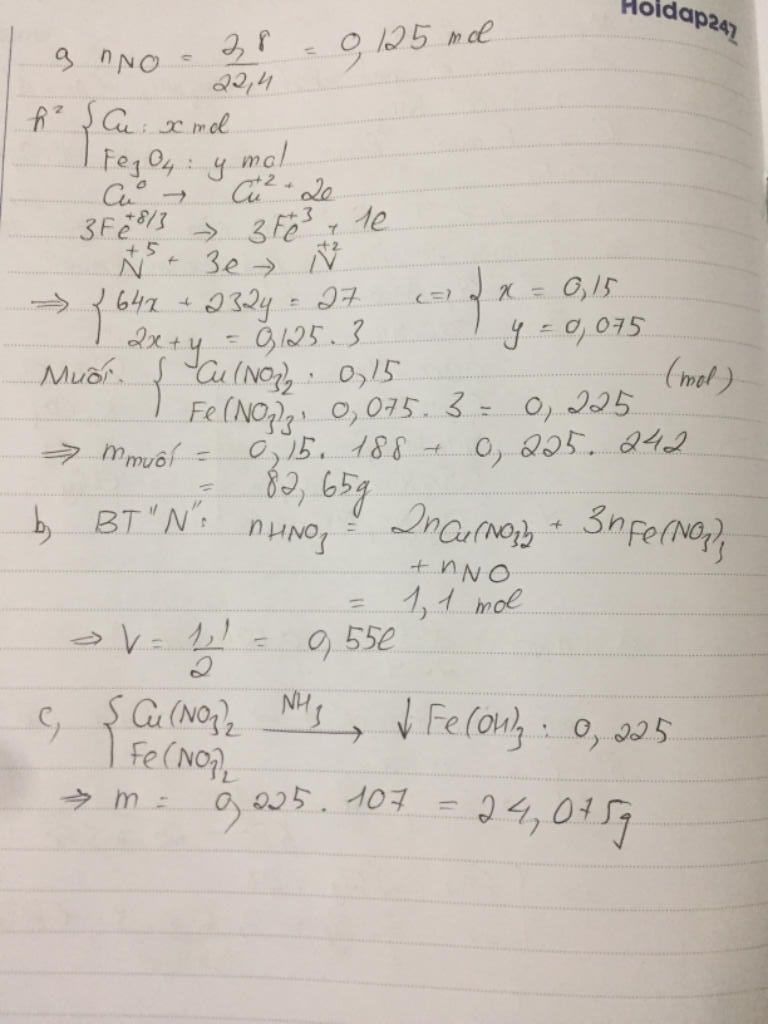 Hoidap247
a, nNO = 2,8/22,4 = 0,125 mol
h² { Cu : x mol
Fe3O4 : y mol
Cu⁰ → Cu⁺² + 2e
3Fe⁺⁸/³ → 3Fe⁺³ + 1e
N⁺⁵ + 3e → N⁺²
=> { 64x + 232y = 27 <=> { x = 0,15
2x + y = 0,125 . 3 y = 0,075
Muối. { Cu(NO3)2 . 0,15 (mol)
Fe(NO3)3 . 0,075 . 3 = 0,225
=> mmuối = 0,15 . 188 + 0,225 . 242
= 82,65g
b, BT "N": nHNO3 = 2nCu(NO3)2 + 3nFe(NO3)3
+ nNO
= 1,1 mol
=> V = 1,1/2 = 0,55l
c, { Cu(NO3)2 NH3 → ↓ Fe(OH)3 : 0,225
Fe(NO3)2
=> m = 0,225 . 107 = 24,075g